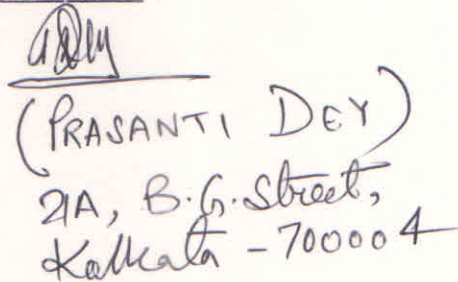 (PRASANTI DEY)
21A, B.G. Street,
Kolkata - 700004